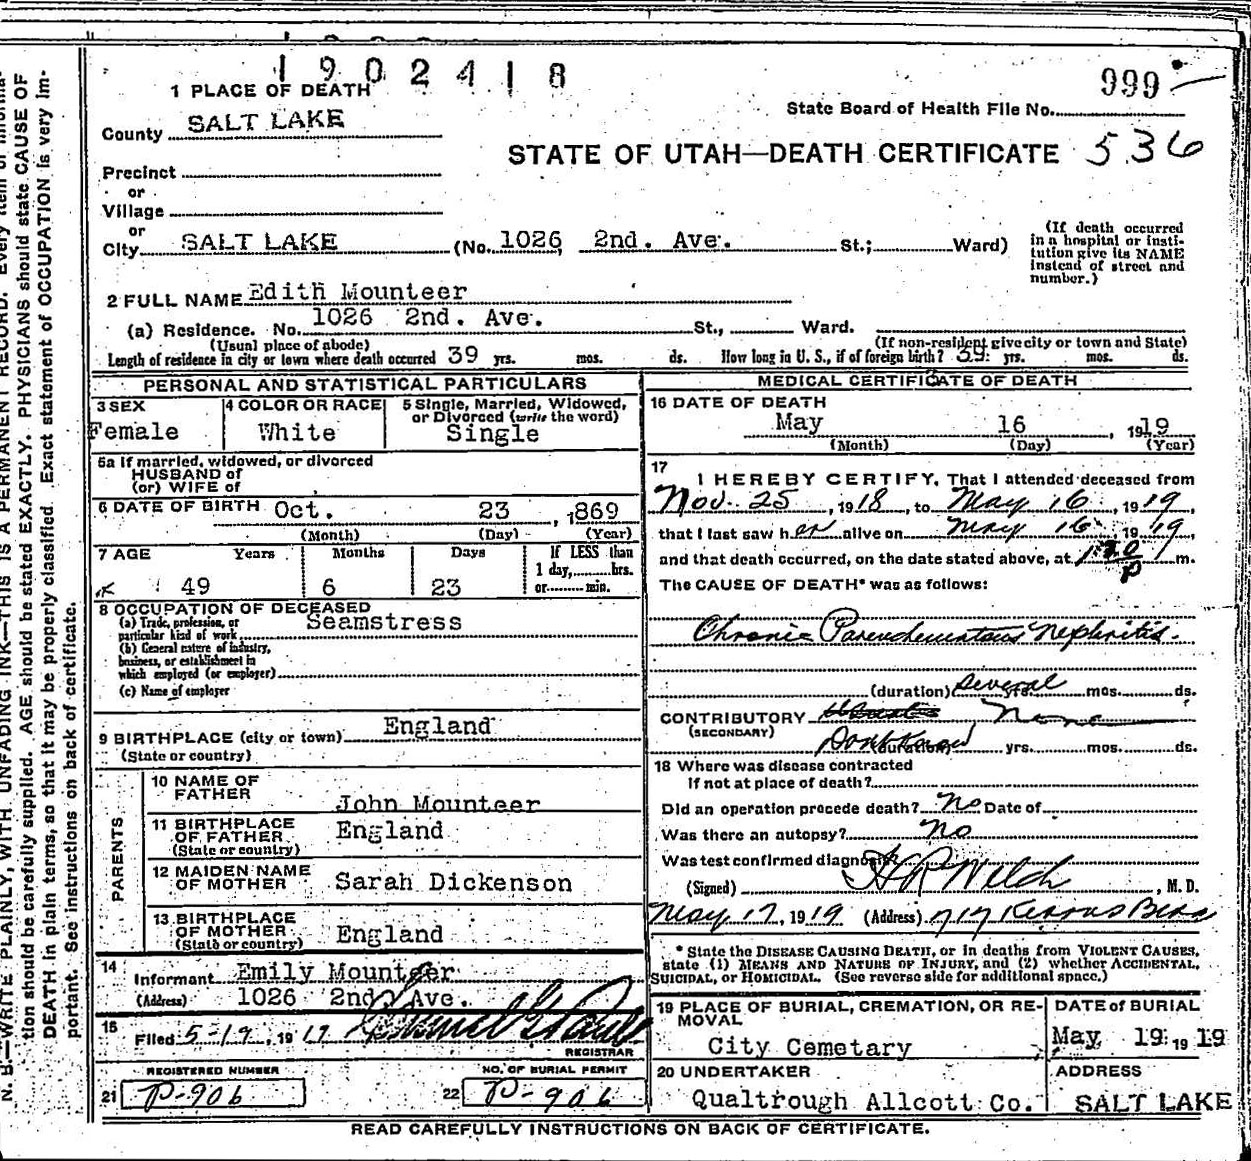 1902418
999
1 PLACE OF DEATH
State Board of Health File No.
County SALT LAKE
STATE OF UTAH—DEATH CERTIFICATE 536
Precinct
or
Village
or
City SALT LAKE (No. 1026 2nd. Ave. St.; Ward)
(If death occurred in a hospital or insti-tution give its NAME instead of street and number.)
2 FULL NAME Edith Mounteer
(a) Residence. No. 1026 2nd. Ave. St., Ward.
(Usual place of abode) (If non-resident give city or town and State)
Length of residence in city or town where death occurred 39 yrs. mos. ds. How long in U. S., if of foreign birth? 39 yrs. mos. ds.
PERSONAL AND STATISTICAL PARTICULARS
3 SEX 4 COLOR OR RACE 5 Single, Married, Widowed, or Divorced (write the word)
Female White Single
5a If married, widowed, or divorced
HUSBAND of
(or) WIFE of
6 DATE OF BIRTH Oct. 23, 1869
(Month) (Day) (Year)
7 AGE Years Months Days If LESS than
1 day, hrs.
49 6 23 or min.
8 OCCUPATION OF DECEASED
(a) Trade, profession, or particular kind of work Seamstress
(b) General nature of industry,
business, or establishment in
which employed (or employer)
(c) Name of employer
9 BIRTHPLACE (city or town) England
(State or country)
PARENTS
10 NAME OF FATHER John Mounteer
11 BIRTHPLACE OF FATHER England
(State or country)
12 MAIDEN NAME OF MOTHER Sarah Dickenson
13 BIRTHPLACE OF MOTHER England
(State or country)
14 Informant Emily Mounteer
(Address) 1026 2nd Ave.
15 Filed 5-19, 1919
REGISTRAR
REGISTERED NUMBER NO. OF BURIAL PERMIT
21 P-906 22 P-906
MEDICAL CERTIFICATE OF DEATH
16 DATE OF DEATH
May 16, 1919
(Month) (Day) (Year)
17 I HEREBY CERTIFY, That I attended deceased from
Nov. 25, 1918, to May 16, 1919
that I last saw her alive on May 16, 1919,
and that death occurred, on the date stated above, at 1:30 P m.
The CAUSE OF DEATH* was as follows:
Chronic Parenchematous Nephritis.
(duration) several mos. ds.
CONTRIBUTORY None
(SECONDARY)
yrs. mos. ds.
18 Where was disease contracted
If not at place of death?
Did an operation precede death? No Date of
Was there an autopsy? No
Was test confirmed diagnosis?
(Signed) H P Welch, M. D.
May 17, 1919 (Address) 717 Kearns Bldg
* State the DISEASE CAUSING DEATH, or in deaths from VIOLENT CAUSES,
state (1) MEANS AND NATURE OF INJURY, and (2) whether ACCIDENTAL,
SUICIDAL, or HOMICIDAL. (See reverse side for additional space.)
19 PLACE OF BURIAL, CREMATION, OR RE-MOVAL DATE of BURIAL
City Cemetary May 19 1919
20 UNDERTAKER ADDRESS
Qualtrough Allcott Co. SALT LAKE
READ CAREFULLY INSTRUCTIONS ON BACK OF CERTIFICATE.
N. B.—WRITE PLAINLY, WITH UNFADING INK—THIS IS A PERMANENT RECORD. Every item of informa-
tion should be carefully supplied. AGE should be stated EXACTLY. PHYSICIANS should state CAUSE OF
DEATH in plain terms, so that it may be properly classified. Exact statement of OCCUPATION is very im-
portant. See instructions on back of certificate.